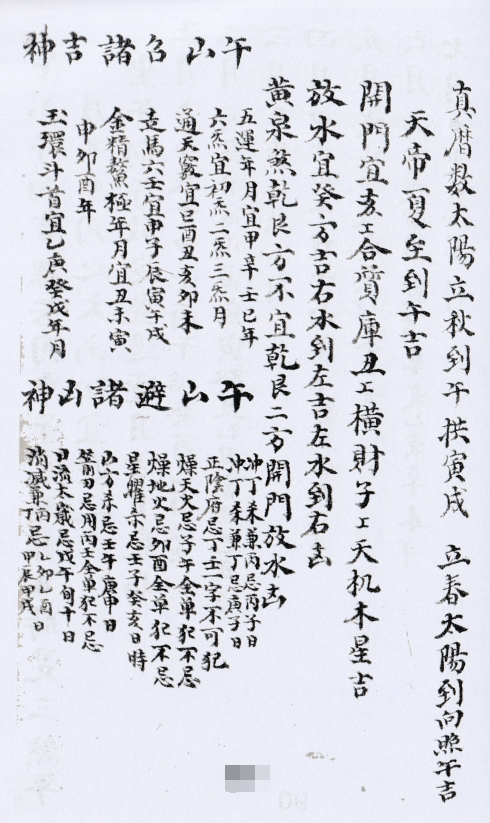 真曆数太陽立秋到午拱寅戌 立春太陽到向照午吉
天帝夏至到午吉
開門宜亥工合質庫丑工橫財子工天机木星吉
放水宜癸方吉右水到左吉左水到右凶
黃泉煞乾艮方不宜乾艮二方開門放水凶
午山召諸吉神
五運年月宜甲辛壬巳年
六炁宜初炁二炁三炁月
通天竅宜巳酉丑亥卯未
走馬六壬宜申子辰寅午戌
金精鰲極年月宜丑未寅
申卯酉年
玉環斗首宜乙庚癸戊年月
午山避諸凶神
冲丁未兼丙忌丙子日
冲丁柔兼丁忌庚子日
正陰府忌丁壬一字不可犯
燥天火忌子午全单犯不忌
燥地火忌卯酉全单犯不忌
星曜杀忌壬子癸亥日時
山方杀忌壬午庚申日
箭刃忌用丙壬全单犯不忌
日流太歲忌戊午旬十日
消滅兼丙忌乙卯乙酉日
丁忌甲辰甲戌日